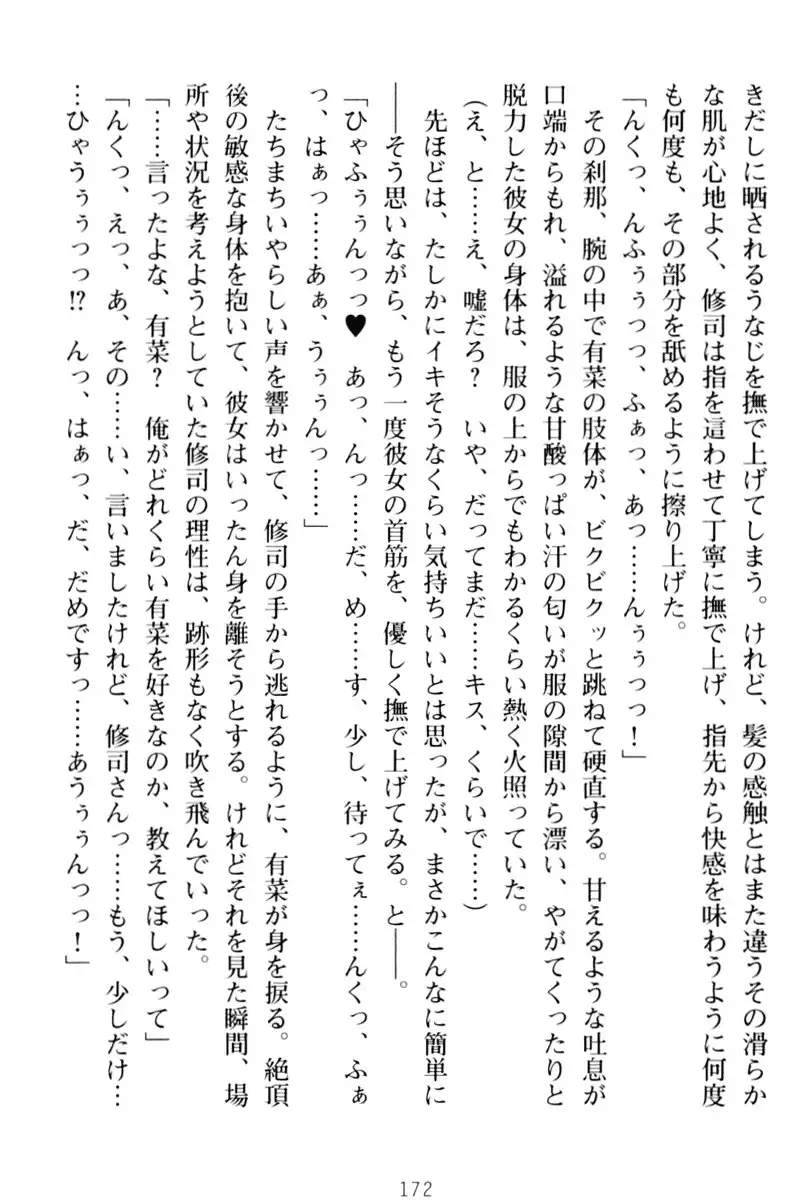 きだしに晒されるうなじを撫で上げてしまう。けれど、髪の感触とはまた違うその滑らか
な肌が心地よく、修司は指を這わせて丁寧に撫で上げ、指先から快感を味わうように何度
も何度も、その部分を舐めるように擦り上げた。
「んくっ、んふぅぅっっ、ふぁっ、あっ……んぅぅっっ！」
その刹那、腕の中で有菜の肢体が、ビクビクッと跳ねて硬直する。甘えるような吐息が
口端からもれ、溢れるような甘酸っぱい汗の匂いが服の隙間から漂い、やがてくったりと
脱力した彼女の身体は、服の上からでもわかるくらい熱く火照っていた。
（え、と……え、嘘だろ？　いや、だってまだ……キス、くらいで……）
先ほどは、たしかにイキそうなくらい気持ちいいとは思ったが、まさかこんなに簡単に
――そう思いながら、もう一度彼女の首筋を、優しく撫で上げてみる。と――。
「ひゃふぅぅんっっ♥　あっ、んっ……だ、め……す、少し、待ってぇ……んくっ、ふぁ
っ、はぁっ……あぁ、うぅぅんっ……」
たちまちいやらしい声を響かせて、修司の手から逃れるように、有菜が身を捩る。絶頂
後の敏感な身体を抱いて、彼女はいったん身を離そうとする。けれどそれを見た瞬間、場
所や状況を考えようとしていた修司の理性は、跡形もなく吹き飛んでいった。
「……言ったよな、有菜？　俺がどれくらい有菜を好きなのか、教えてほしいって」
「んくっ、えっ、あ、その……い、言いましたけれど、修司さんっ……もう、少しだけ…
…ひゃうぅぅっっ!?　んっ、はぁっ、だ、だめですっ……あうぅぅんっっ！」
172